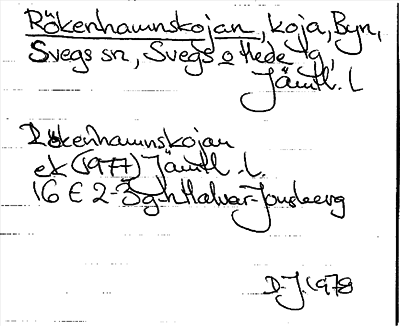 Rökenhamnskojan, koja, Byn,
Svegs sn, Svegs o Hede tg,
Jämtl. L
Rökenhamnskojan
ek (1977) Jämtl. L.
16 E 2-3 g-h Halvar-Jonsberg
D.J. 1978